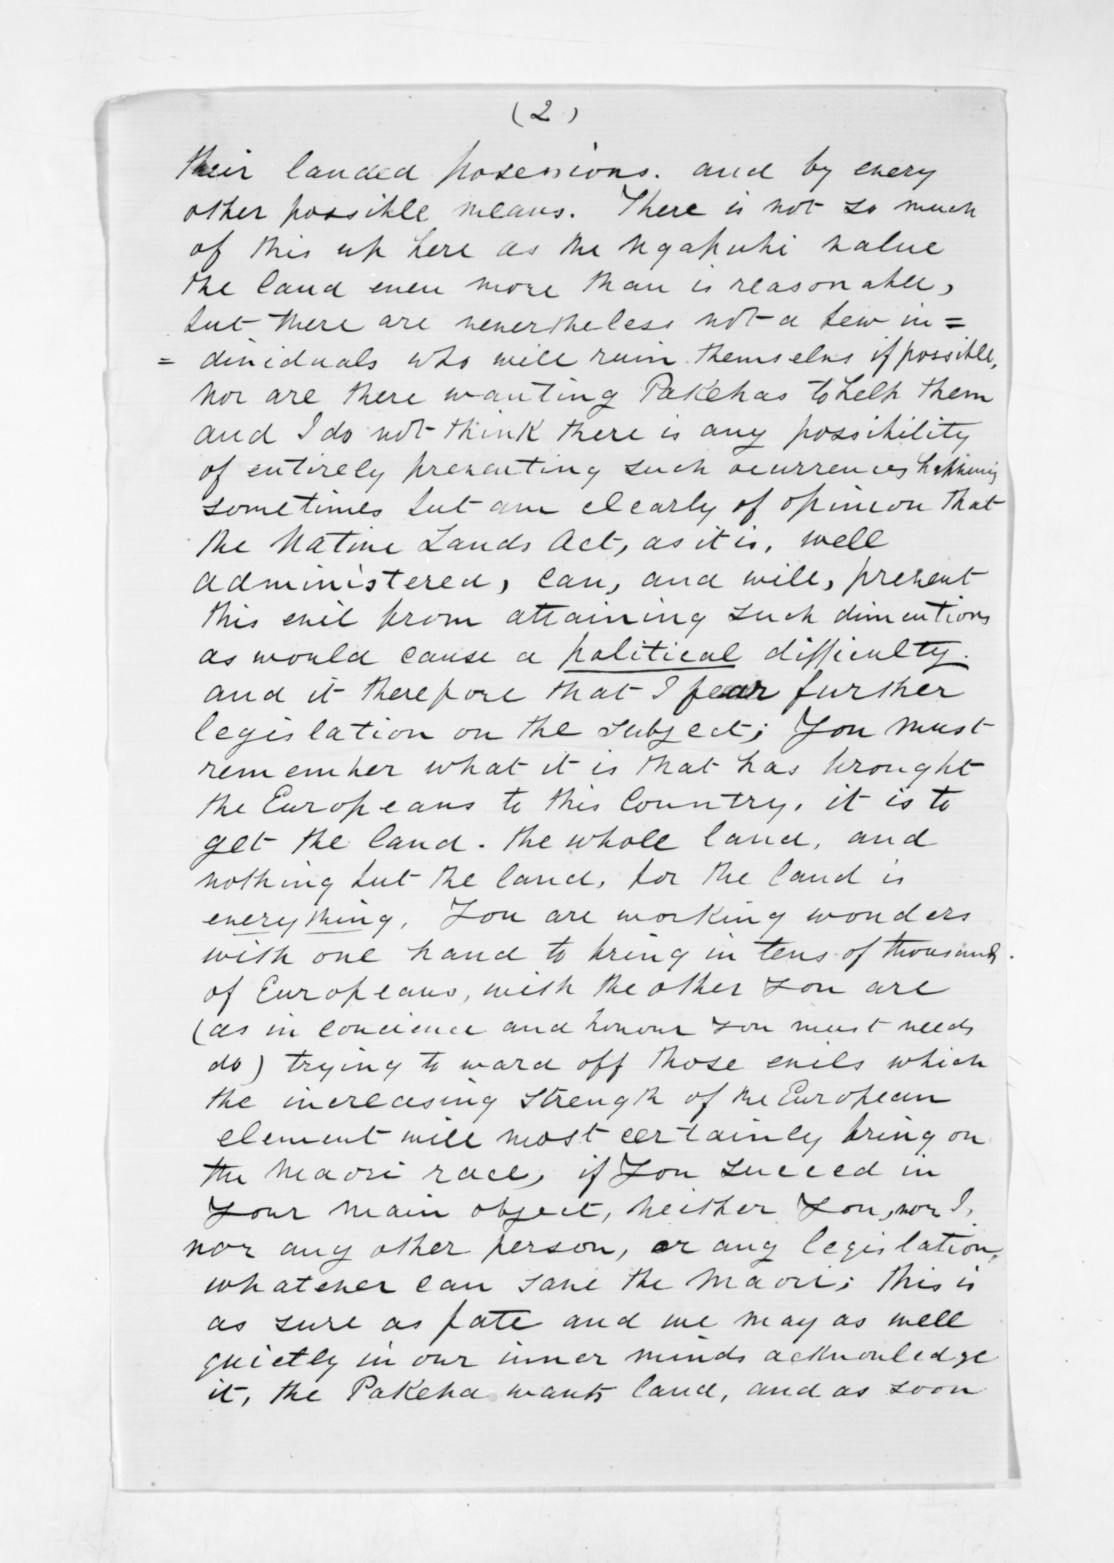 (2)
their landed posessions. and by every
other possible means. There is not so much
of this up here as the Ngapuhi value
the land even more than is reasonable,
but there are nevertheless not a few in=
= dividuals who will ruin themselves if possible,
nor are there wanting Pakehas to help them
and I do not think there is any possibility
of entirely preventing such ocurrences happening
sometimes but am clearly of opinion that
the Native Lands Act, as it is, well
administered, can, and will, prevent
this evil from attaining such dimentions
as would cause a political difficulty.
and it therefore that I fear further
legislation on the subject; You must
remember what it is that has brought
the Europeans to this Country. it is to
get the land. the whole land, and
nothing but the land, for the land is
everything. You are working wonders
with one hand to bring in tens of thousands.
of Europeans, with the other you are
(as in concience and honour you must needs
do) trying to ward off those evils which
the increasing strength of the European
element will most certainly bring on
the Maori race, if you succeed in
your main object, neither You, nor I,
nor any other person, or any legislation,
whatever can save the Maori; this is
as sure as fate and we may as well
quietly in our inner minds acknowledge
it, the Pakeha wants land, and as soon